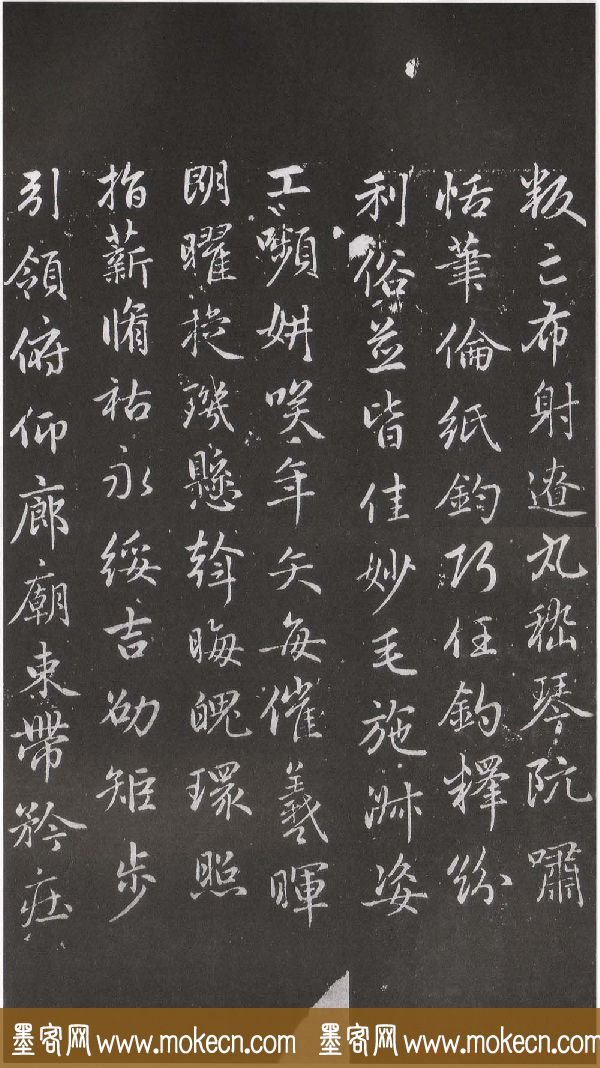 叛亡布射遼丸嵇琴阮嘯
恬筆倫紙鈞巧任釣釋紛
利俗並皆佳妙毛施淑姿
工嚬妍笑年矢每催羲暉
朗曜旋璣懸斡晦魄環照
指薪脩祜永綏吉劭矩步
引領俯仰廊廟束帶矜庄
墨客网 www.mokecn.com 墨客网 www.mokecn.com